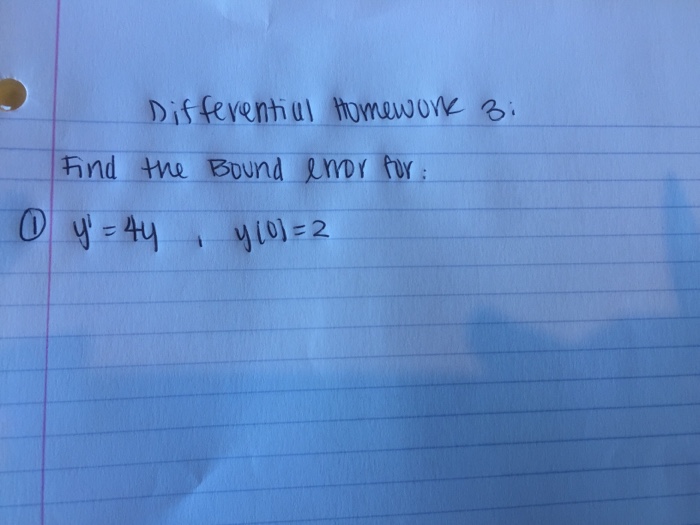 Differential Homework 3:
Find the Bound error for:
① y' = 4y , y(0) = 2